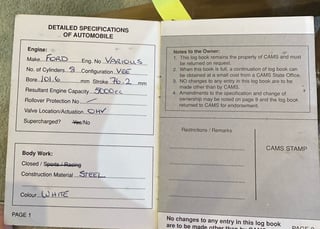 DETAILED SPECIFICATIONS
OF AUTOMOBILE
Engine:
Make FORD Eng. No VARIOUS
No. of Cylinders 8 Configuration VEE
Bore 101.6 mm Stroke 76.2 mm
Resultant Engine Capacity 5000cc
Rollover Protection No
Valve Location/Actuation OHV
Supercharged? Yes/No
Body Work:
Closed / Sports / Racing
Construction Material STEEL
Colour WHITE
PAGE 1
Notes to the Owner:
1. This log book remains the property of CAMS and must
be returned on request.
2. When this book is full, a continuation of log book can
be obtained at a small cost from a CAMS State Office.
3. NO changes to any entry in this log book are to be
made other than by CAMS.
4. Amendments to the specification and change of
ownership may be noted on page 8 and the log book
returned to CAMS for endorsement.
Restrictions / Remarks
CAMS STAMP
No changes to any entry in this log book
are to be made other than by CAMS